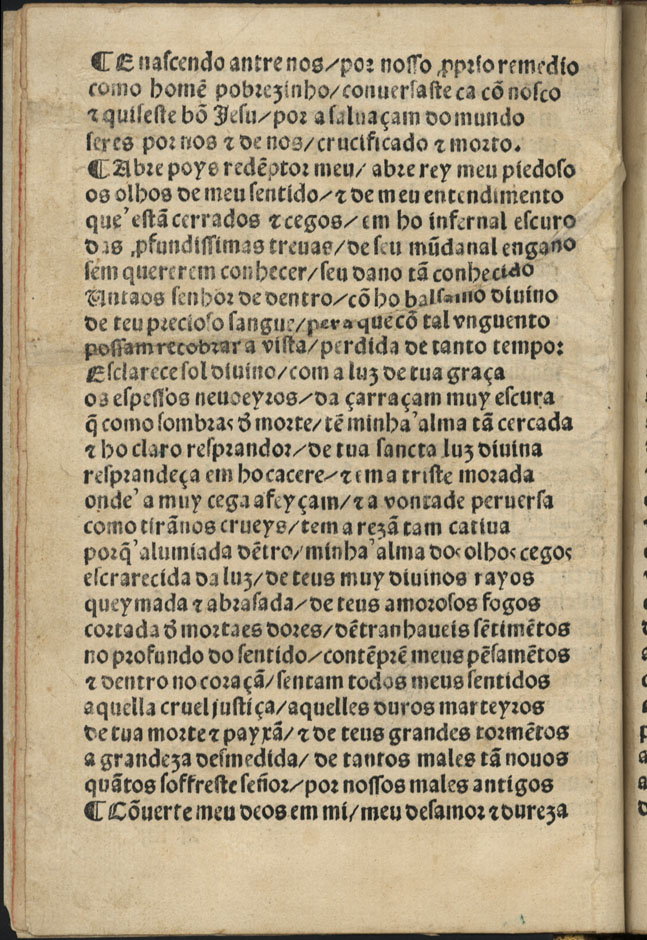 ¶ E nascendo antre nos/por nosso ꝓprio remedio
como homẽ pobrezinho/conuersaste ca cõ nosco
⁊ quiseste bõ Jesu/por a saluaçam do mundo
seres por nos ⁊ de nos/crucificado ⁊ morto.
¶ Abre poys redẽptor meu/ abre rey meu piedoso
os olhos de meu sentido/⁊ de meu entendimento
que' estã cerrados ⁊ cegos/em ho infernal escuro
das ꝓfundissimas treuas/de seu mũdanal engano
sem quererem conhecer/seu dano tã conhecido
Untaos senhor de dentro/cõ ho balsamo diuino
de teu precioso sangue/pera que cõ tal vnguento
possam recobrar a vista/perdida de tanto tempo:
Esclarece sol diuino/com a luz de tua graça
os espessos neuoeyros/da çarraçam muy escura
q̃ como sombras d̃ morte/tẽ minha' alma tã cercada
⁊ ho claro resprandor/de tua sancta luz diuina
resprandeça em ho cacere/⁊ em a triste morada
onde' a muy cega afeyçam/⁊ a vontade peruersa
como tirãnos crueys/tem a rezã tam catiua
porq̃' alumiada dẽtro/minha' alma dos olhos cegos
escrarecida da luz/de teus muy diuinos rayos
queymada ⁊ abrasada/de teus amorosos fogos
cortada d̃ mortaes dores/dẽtranhaueis sẽtimẽtos
no profundo do sentido/contẽprẽ meus pẽsamẽtos
⁊ dentro no coraçã/sentam todos meus sentidos
aquella cruel justiça/aquelles duros marteyros
de tua morte ⁊ payxã/⁊ de teus grandes tormẽtos
a grandeza desmedida/de tantos males tã nouos
quãtos soffreste señor/por nossos males antigos
¶ Cõuerte meu deos em mi/meu desamor ⁊ dureza